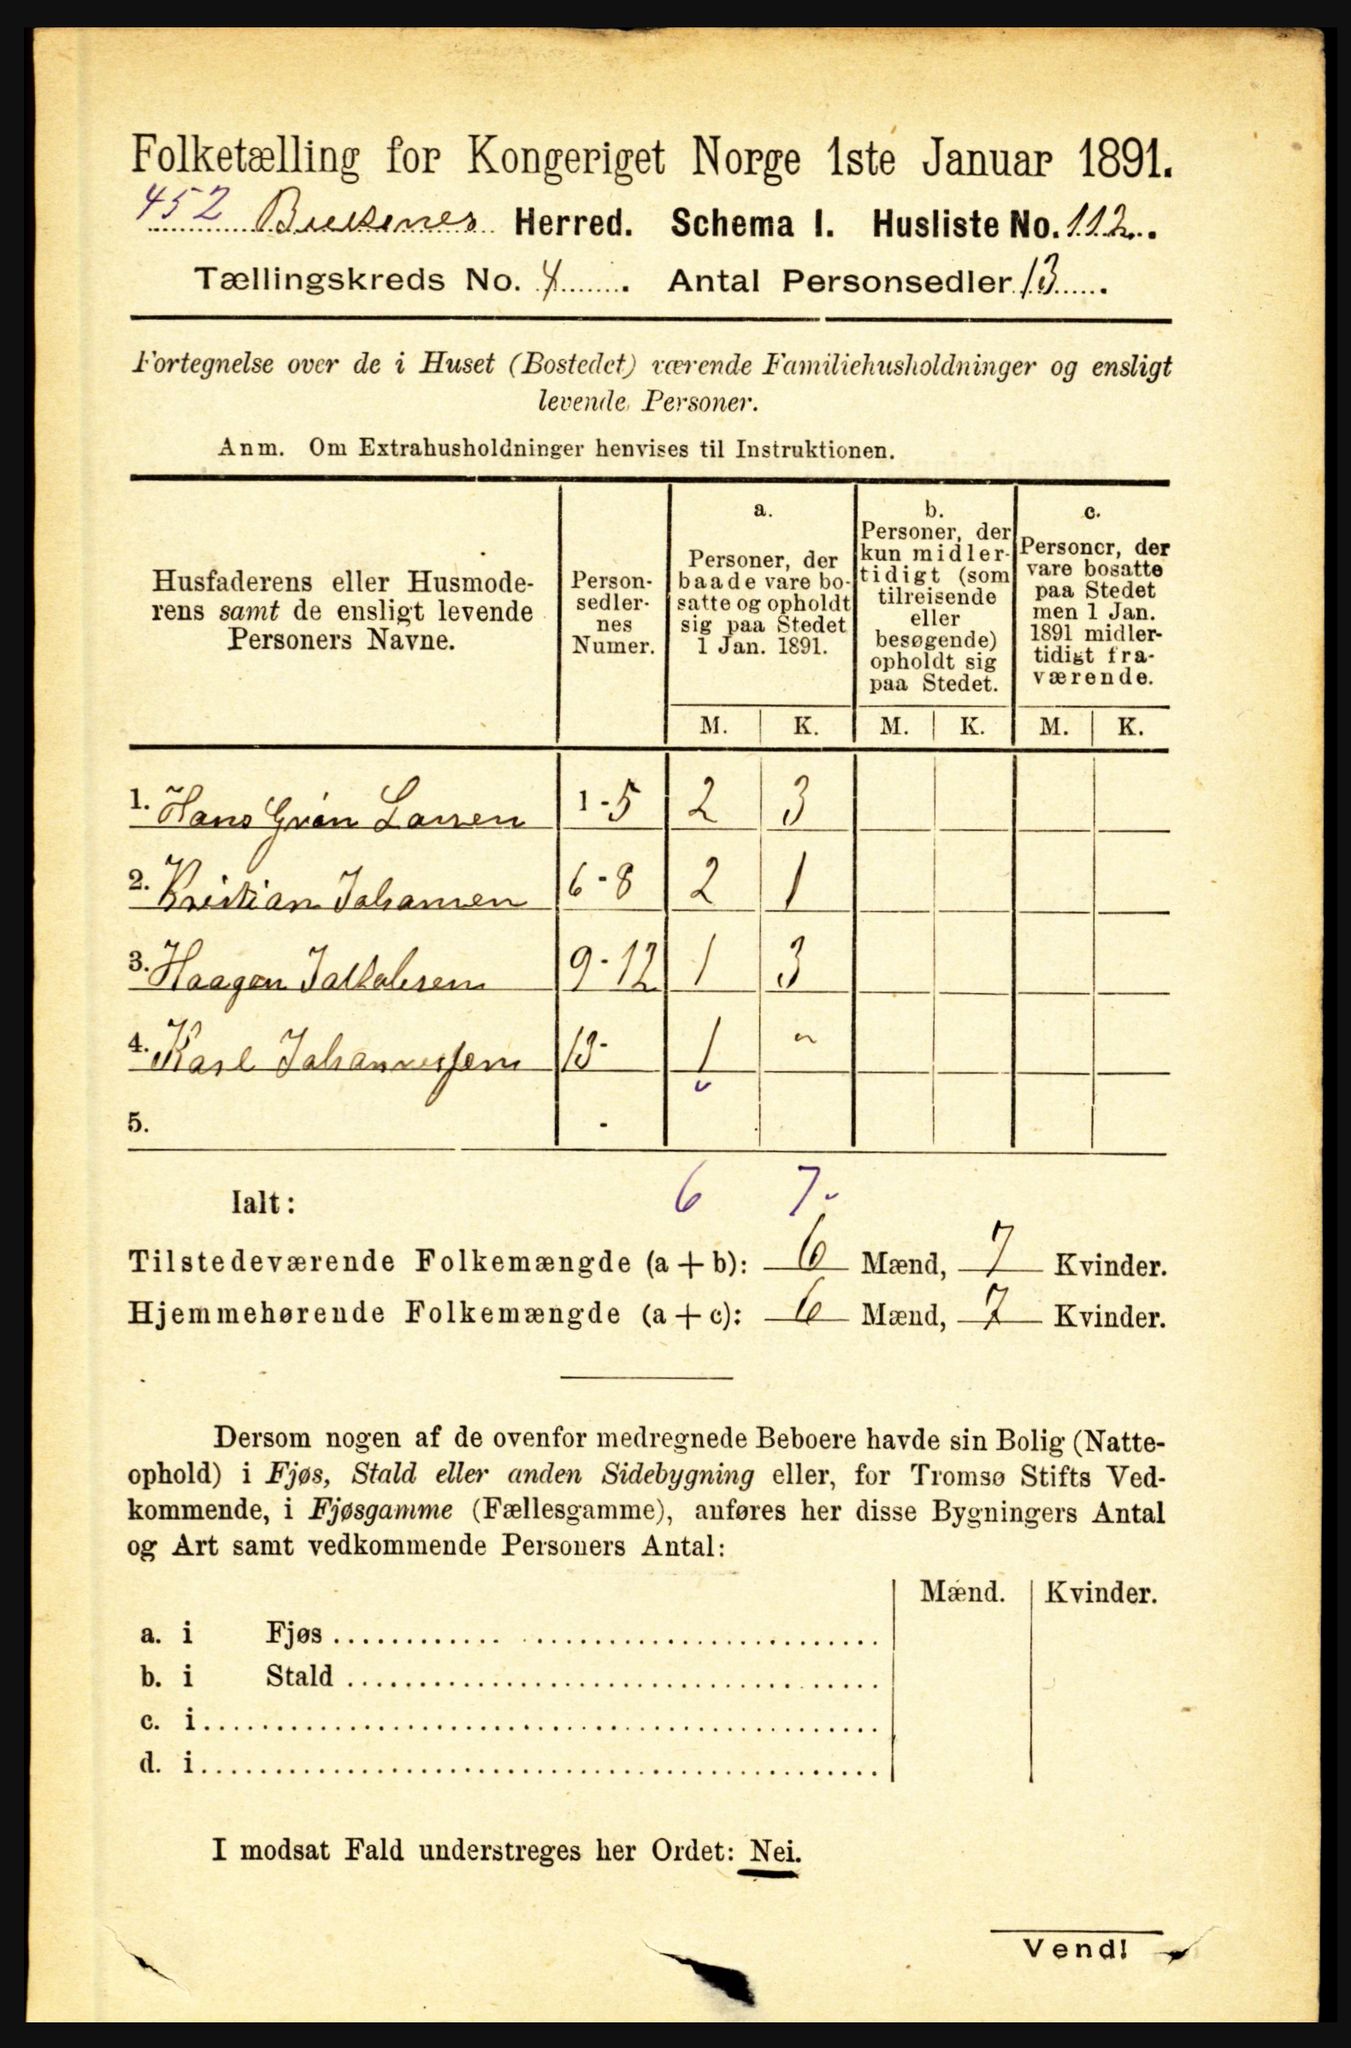 Folketælling for Kongeriget Norge 1ste Januar 1891.
452 Buksnes Herred. Schema I. Husliste No. 112.
Tællingskreds No. 4. Antal Personsedler 13.
Fortegnelse over de i Huset (Bostedet) værende Familiehusholdninger og ensligt
levende Personer.
Anm. Om Extrahusholdninger henvises til Instruktionen.
Husfaderens eller Husmode-
rens samt de ensligt levende
Personers Navne.
Person-
sedler-
nes
Numer.
a.
Personer, der
baade vare bo-
satte og opholdt
sig paa Stedet
1 Jan. 1891.
b.
Personer, der
kun midler-
tidigt (som
tilreisende
eller
besøgende)
opholdt sig
paa Stedet.
c.
Personer, der
vare bosatte
paa Stedet
men 1 Jan.
1891 midler-
tidigt fra-
værende.
M. K. M. K. M. K.
1. Hans Grøn Larsen 1-5 2 3
2. Kristian Johansen 6-8 2 1
3. Haagen Jakobsen 9-12 1 3
4. Karl Johannessen 13- 1 "
5. -
Ialt: 6 7
Tilstedeværende Folkemængde (a + b): 6 Mænd, 7 Kvinder.
Hjemmehørende Folkemængde (a + c): 6 Mænd, 7 Kvinder.
Dersom nogen af de ovenfor medregnede Beboere havde sin Bolig (Natte-
ophold) i Fjøs, Stald eller anden Sidebygning eller, for Tromsø Stifts Ved-
kommende, i Fjøsgamme (Fællesgamme), anføres her disse Bygningers Antal
og Art samt vedkommende Personers Antal:
Mænd. Kvinder.
a. i Fjøs
b. i Stald
c. i
d. i
I modsat Fald understreges her Ordet: Nei.
Vend!